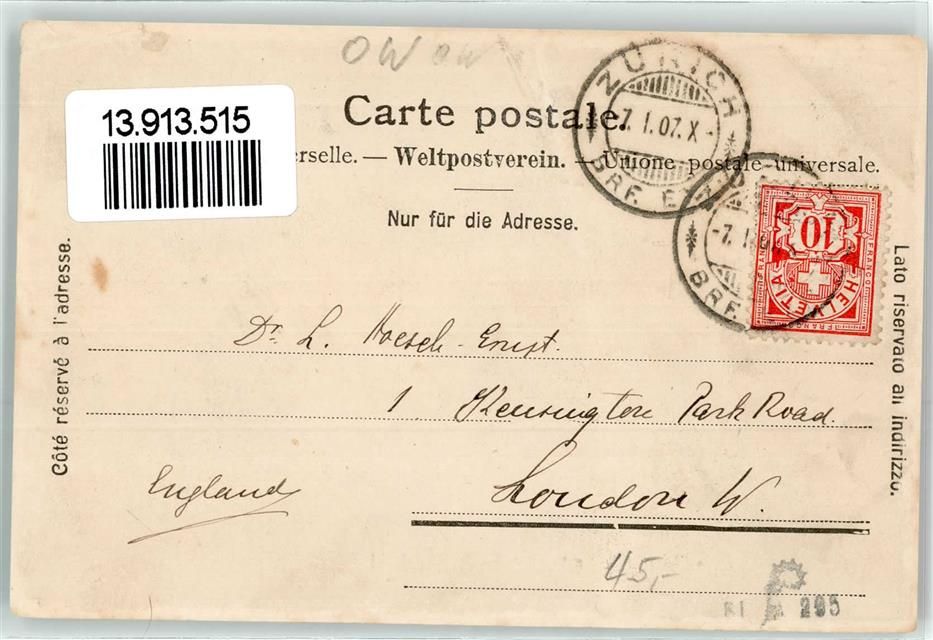 OW OW
ZÜRICH
-7. I. 07. X-
BRF. EX
13.913.515
Carte postale.
erselle. — Weltpostverein. — Unione postale universale.
Nur für die Adresse.
-7. I.
BRF.
10
FRANCO
HELVETIA
FRANCO
Côté réservé à l'adresse.
Lato riservato all indirizzo.
Dr. L. Hoesch-Ernst.
1 Kensington Park Road.
England
London W.
45,-
295